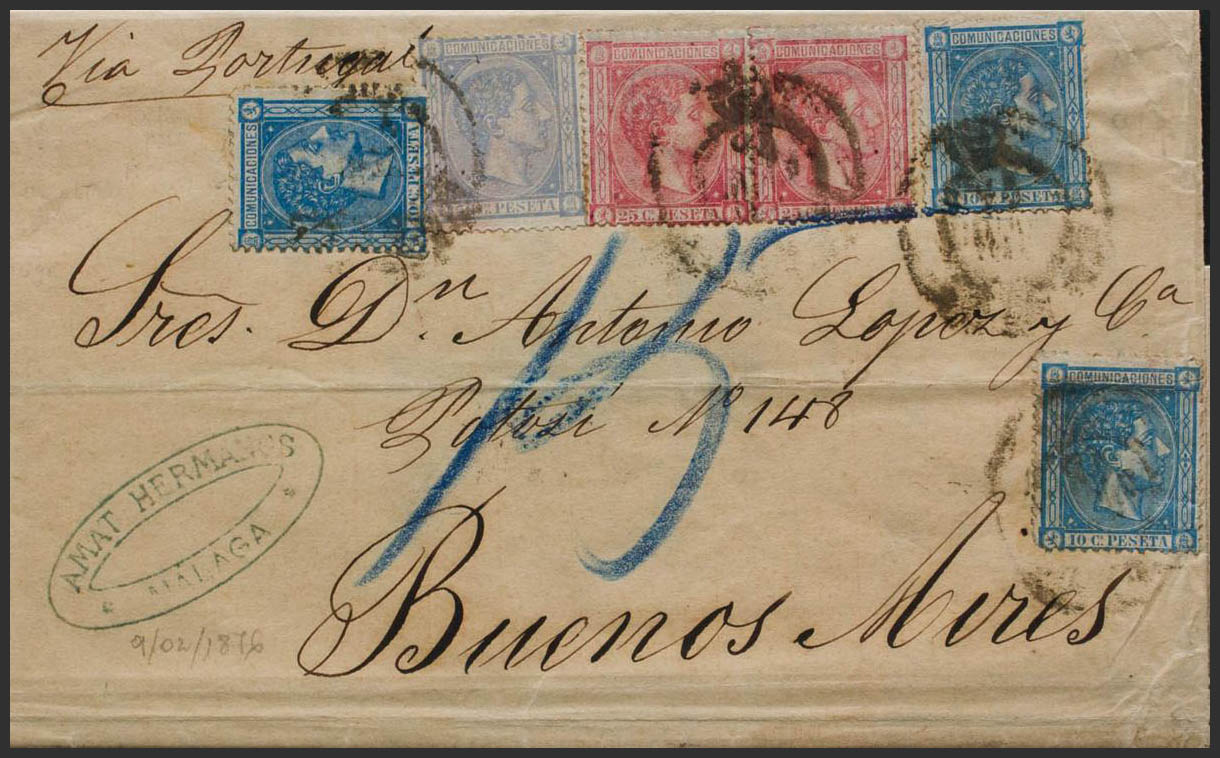 Via Portugal
COMUNICACIONES
10 C. PESETA
COMUNICACIONES
C. PESETA
COMUNICACIONES
25 C. PESETA
COMUNICACIONES
25 C. PESETA
COMUNICACIONES
10 C. PESETA
Sres. Dn. Antonio Lopez y Ca.
Potosi No 148
15
COMUNICACIONES
10 C. PESETA
AMAT HERMANOS
MALAGA
Buenos Aires
9/02/1876